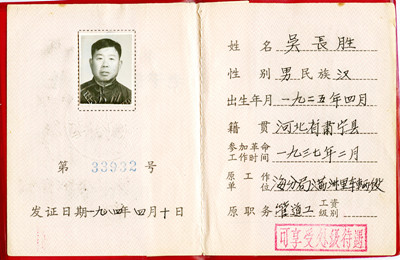 第 33932 号
发证日期一九八四年四月十日
姓名 吴長胜
性别 男 民族 汉
出生年月 一九二五年四月
籍贯 河北省肃宁县
参加革命
工作时间 一九三七年二月
原工作
单位 海分局满洲里车辆段
原职务 管道工 工资
级别
可享受处级待遇